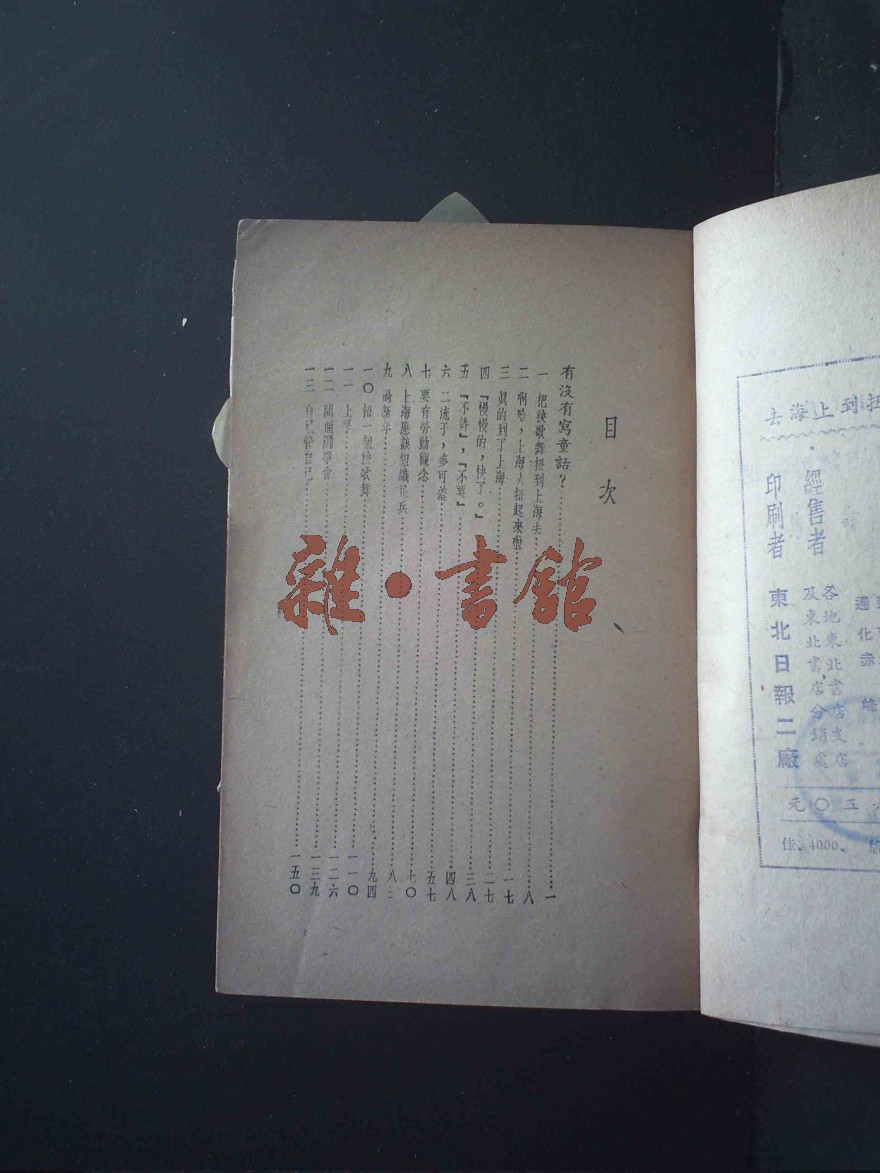 扭到上海去
各地東北書店支店
及東北書店分銷處
經售者
印刷者 東北日報二廠
五〇元
佳. 4000.
目次
有沒有寫童話?……一
一 把秧歌舞扭到上海去……八
二 啊哈,上海人扭起來啦……一七
三 眞的到了上海……二七
四 『慢慢的,快了。』……三八
五 『不許』,『不要』……四八
六 二流子,多可羞……五七
七 要有勞動觀念……七〇
八 上海應該組織民兵……八二
九 過新年……九四
一〇 扭一個秧歌舞……一一〇
一一 上學……一二六
一二 學會……一三九
一三 自己管自己……一五〇
雜·書館